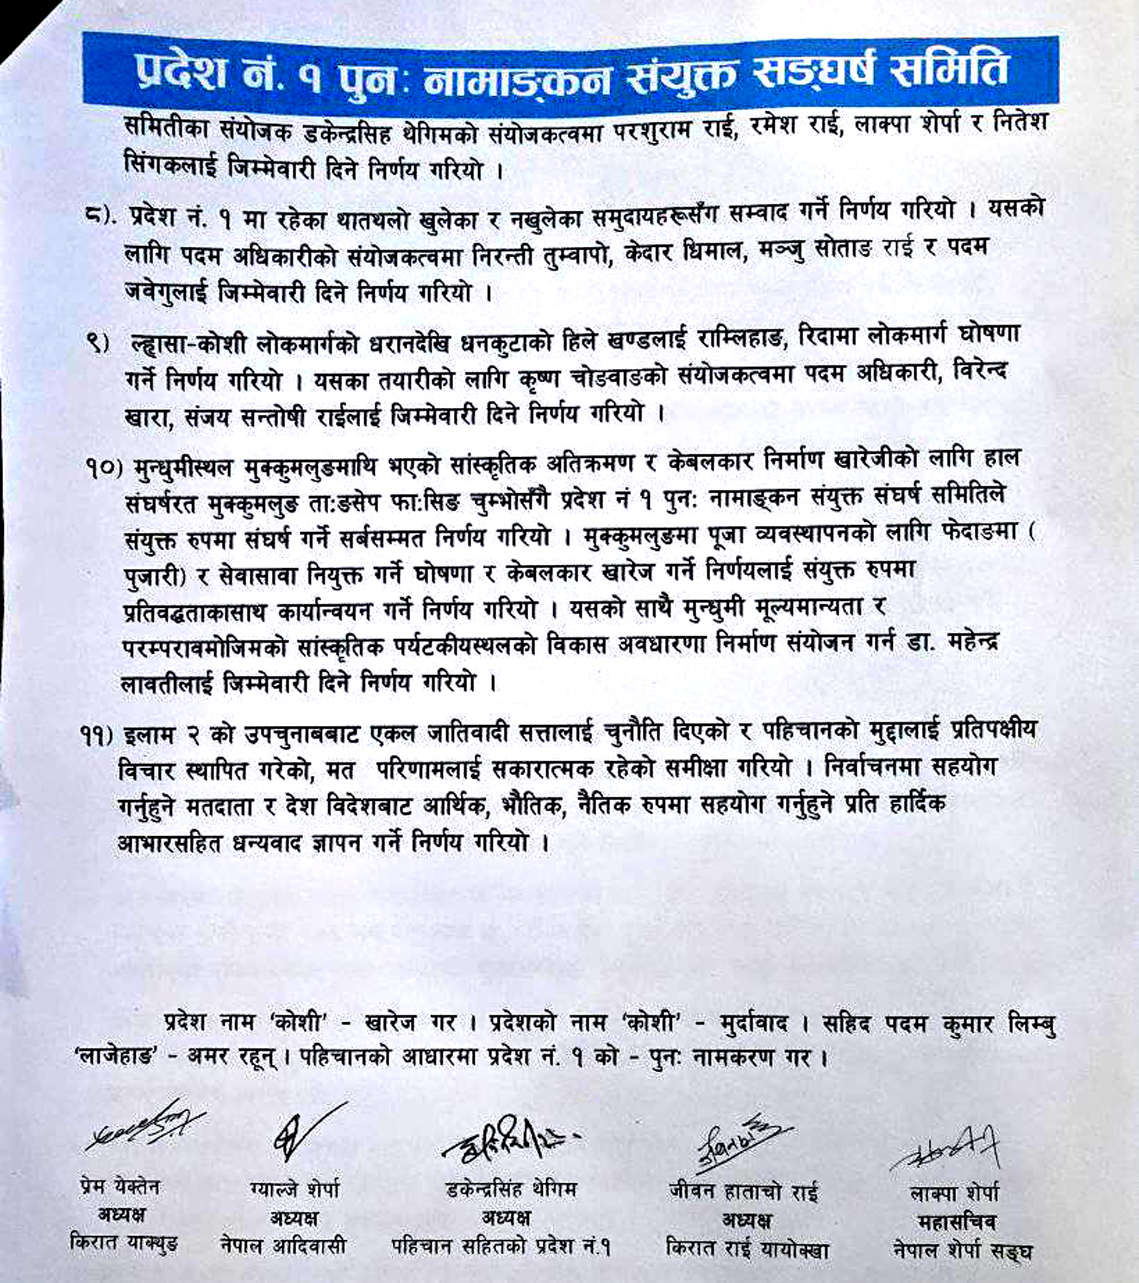 प्रदेश नं. १ पुनः नामाङ्कन संयुक्त सङ्घर्ष समिति
समितीका संयोजक डकेन्द्रसिह थेगिमको संयोजकत्वमा परशुराम राई, रमेश राई, लाक्पा शेर्पा र नितेश
सिंगकलाई जिम्मेवारी दिने निर्णय गरियो ।
८). प्रदेश नं. १ मा रहेका थातथलो खुलेका र नखुलेका समुदायहरूसँग सम्वाद गर्ने निर्णय गरियो । यसको
लागि पदम अधिकारीको संयोजकत्वमा निरन्ती तुम्वापो, केदार धिमाल, मञ्जु सोताङ राई र पदम
जवेगुलाई जिम्मेवारी दिने निर्णय गरियो ।
९) ल्ह्रासा-कोशी लोकमार्गको धरानदेखि धनकुटाको हिले खण्डलाई राम्लिहाङ, रिदामा लोकमार्ग घोषणा
गर्ने निर्णय गरियो । यसका तयारीको लागि कृष्ण चोङवाङको संयोजकत्वमा पदम अधिकारी, विरेन्द
खारा, संजय सन्तोषी राईलाई जिम्मेवारी दिने निर्णय गरियो ।
१०) मुन्धुमीस्थल मुक्कुमलुङमाथि भएको सांस्कृतिक अतिक्रमण र केबलकार निर्माण खारेजीको लागि हाल
संघर्षरत मुक्कुमलुङ ताःङसेप फाःसिङ चुम्भोसँगै प्रदेश नं १ पुनः नामाङ्कन संयुक्त संघर्ष समितिले
संयुक्त रुपमा संघर्ष गर्ने सर्बसम्मत निर्णय गरियो । मुक्कुमलुङमा पूजा व्यवस्थापनको लागि फेदाङमा (
पुजारी) र सेवासावा नियुक्त गर्ने घोषणा र केबलकार खारेज गर्ने निर्णयलाई संयुक्त रुपमा
प्रतिवद्धताकासाथ कार्यान्वयन गर्ने निर्णय गरियो । यसको साथै मुन्धुमी मूल्यमान्यता र
परम्परावमोजिमको सांस्कृतिक पर्यटकीयस्थलको विकास अवधारणा निर्माण संयोजन गर्न डा. महेन्द्र
लावतीलाई जिम्मेवारी दिने निर्णय गरियो ।
११) इलाम २ को उपचुनाबबाट एकल जातिवादी सत्तालाई चुनौति दिएको र पहिचानको मुद्दालाई प्रतिपक्षीय
विचार स्थापित गरेको, मत परिणामलाई सकारात्मक रहेको समीक्षा गरियो । निर्वाचनमा सहयोग
गर्नुहुने मतदाता र देश विदेशबाट आर्थिक, भौतिक, नैतिक रुपमा सहयोग गर्नुहुने प्रति हार्दिक
आभारसहित धन्यवाद ज्ञापन गर्ने निर्णय गरियो ।
प्रदेश नाम ‘कोशी’ - खारेज गर । प्रदेशको नाम ‘कोशी’ - मुर्दावाद । सहिद पदम कुमार लिम्बु
‘लाजेहाङ’ - अमर रहून् । पहिचानको आधारमा प्रदेश नं. १ को - पुनः नामकरण गर ।
प्रेम येक्तेन ग्याल्जे शेर्पा डकेन्द्रसिंह थेगिम जीवन हाताचो राई लाक्पा शेर्पा
अध्यक्ष अध्यक्ष अध्यक्ष अध्यक्ष महासचिव
किरात याक्थुङ नेपाल आदिवासी पहिचान सहितको प्रदेश नं.१ किरात राई यायोक्खा नेपाल शेर्पा सङ्घ